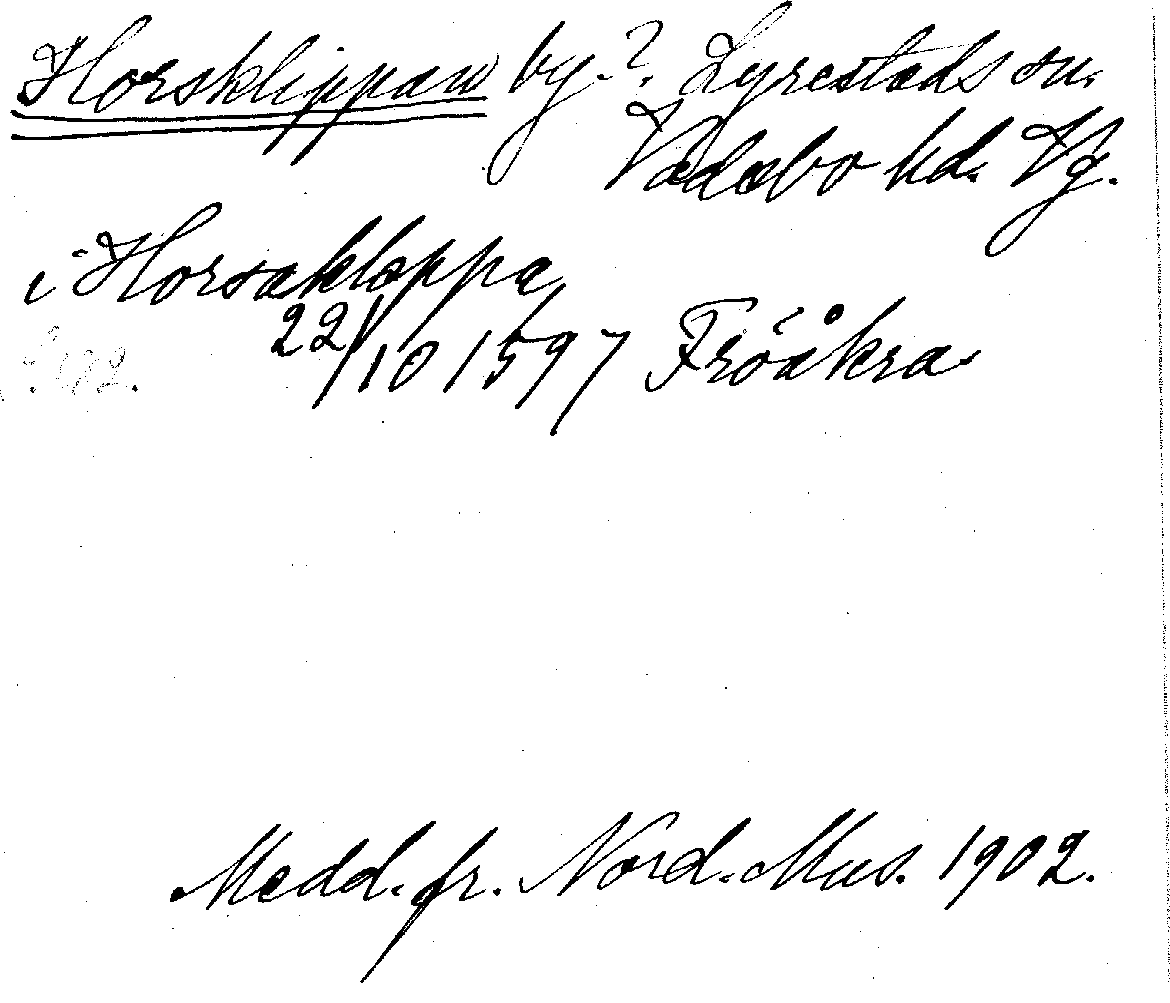 Horsklippan by.?. Lyrestads sn.
Vadsbo hd. Vg.
i Horsakloppa
22/10 1597 Fröåkra
Medd. fr. Nord. Mus. 1902.